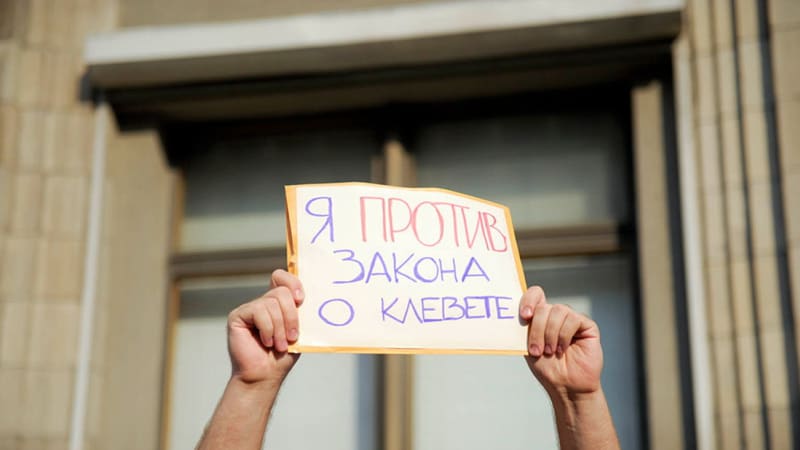 Я ПРОТИВ
ЗАКОНА
О КЛЕВЕТЕ